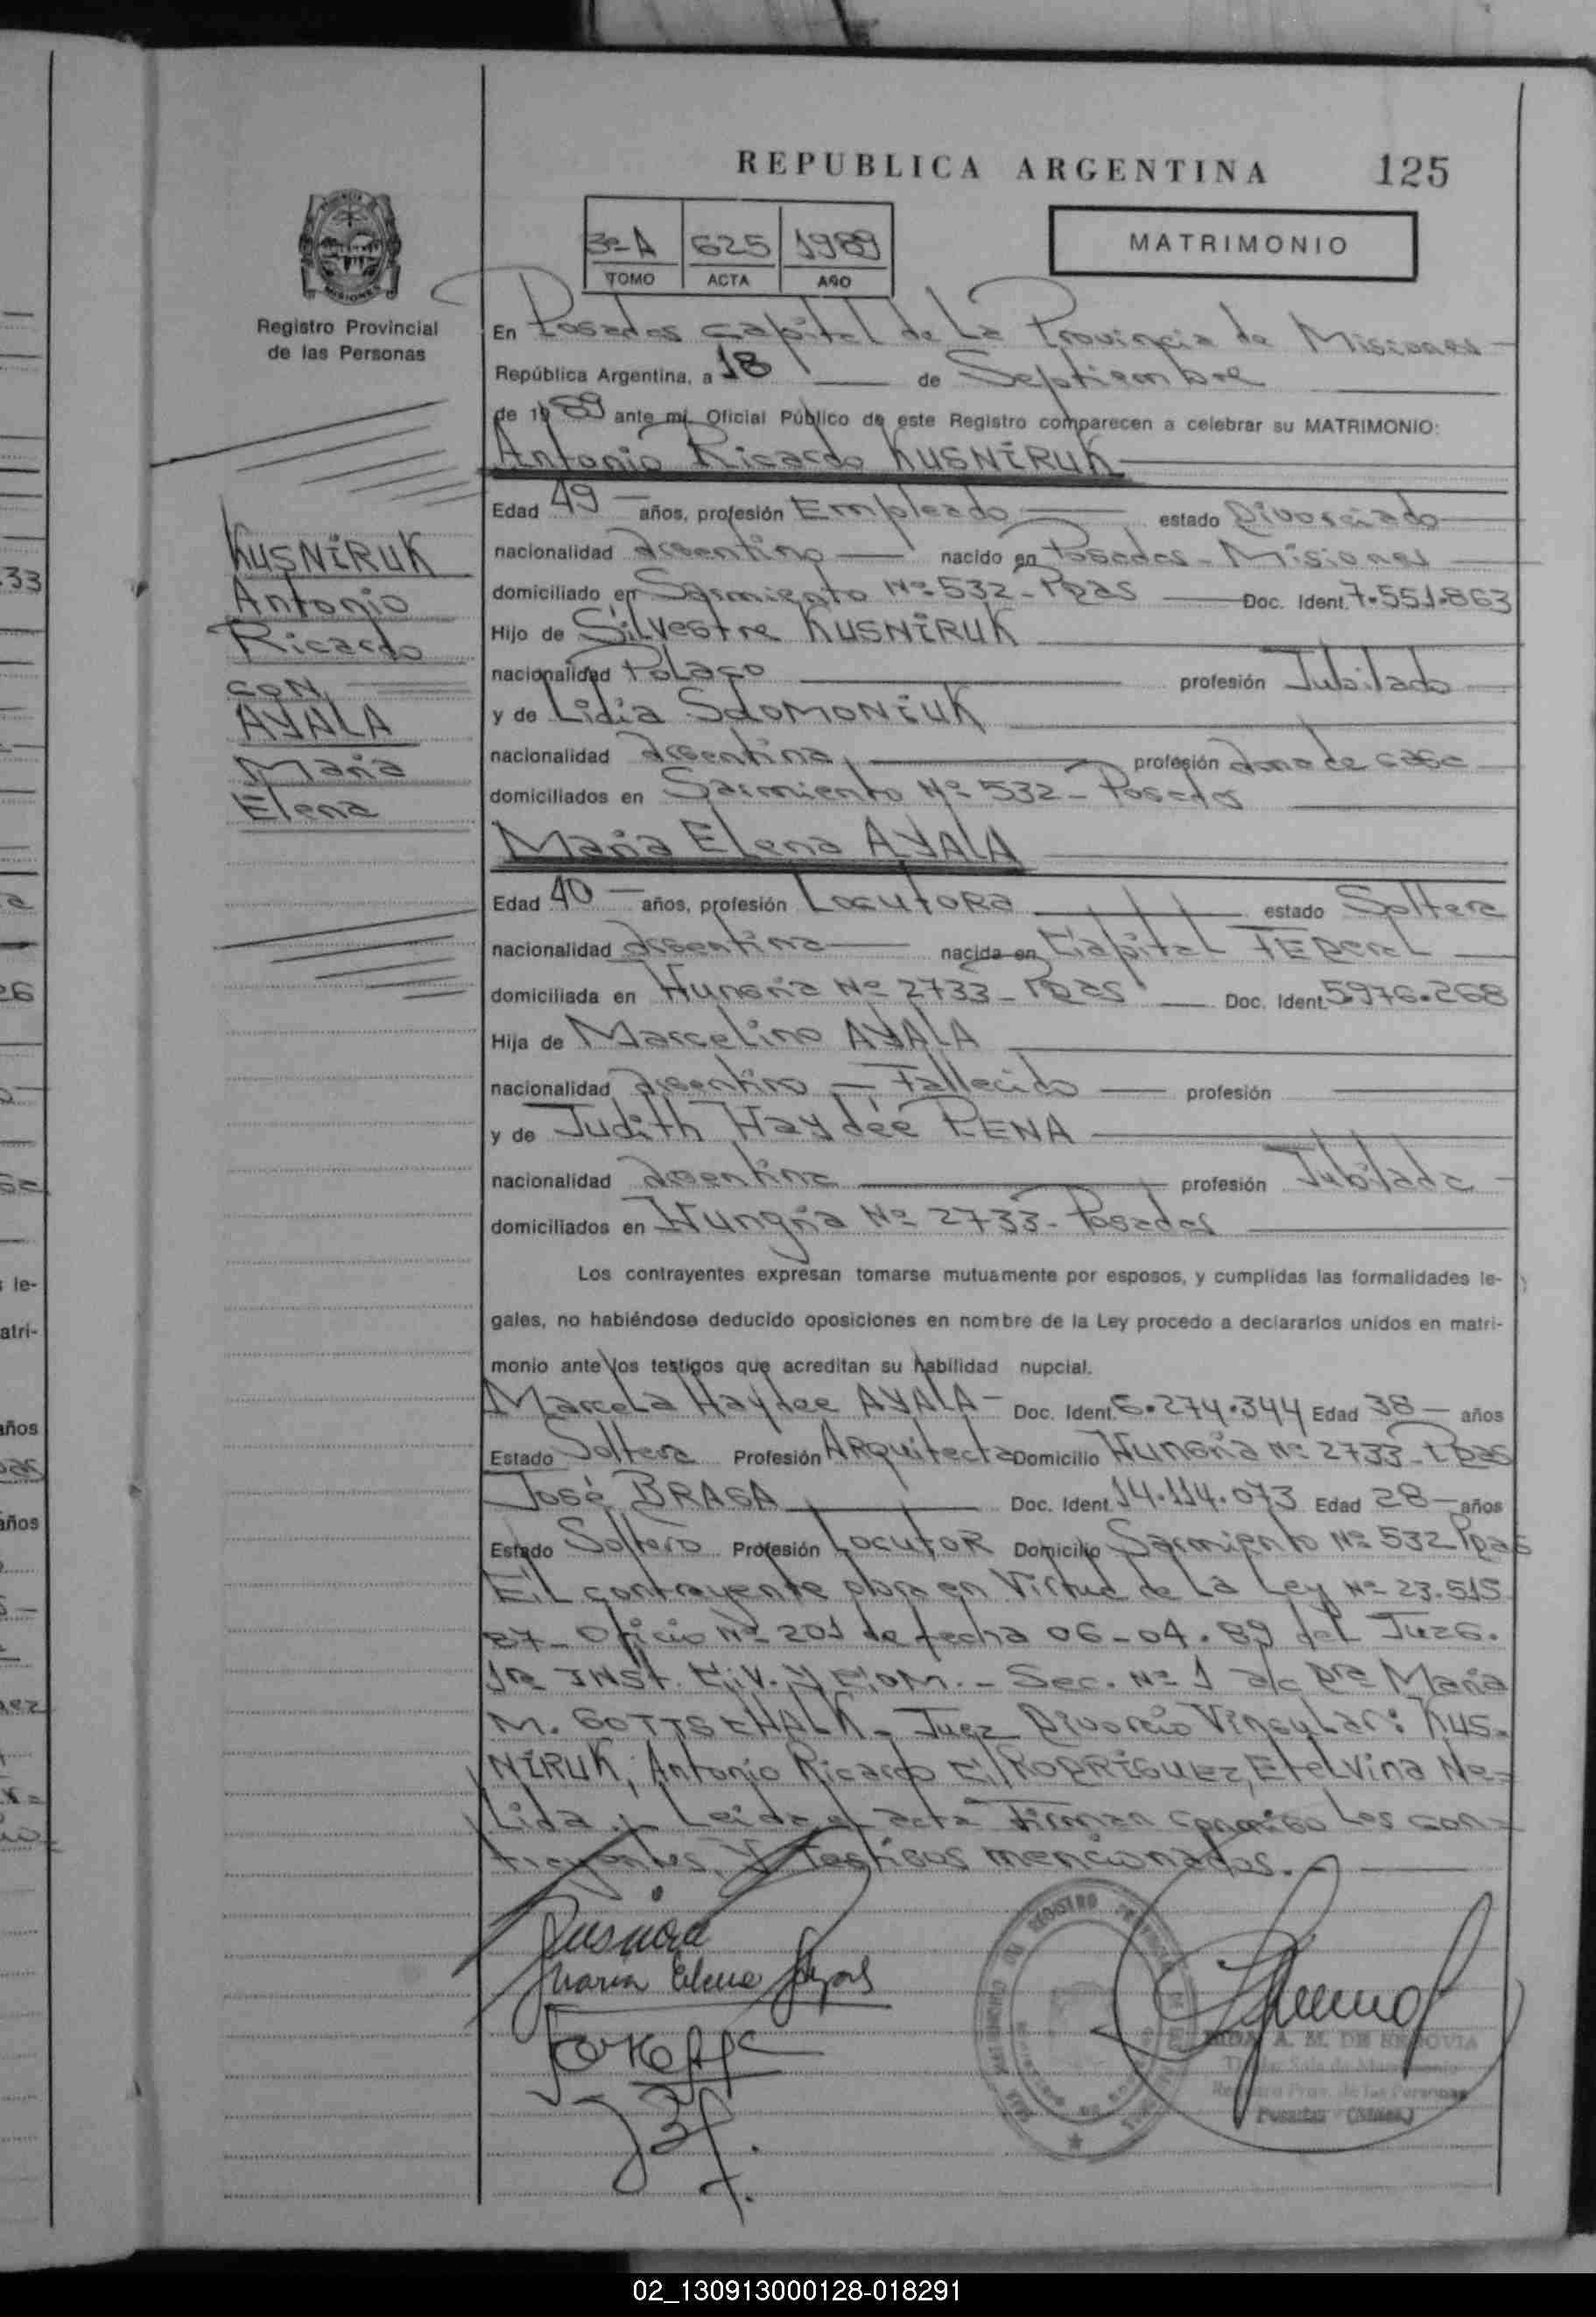 REPUBLICA ARGENTINA 125
3º A 625 1989
TOMO ACTA AÑO
MATRIMONIO
Registro Provincial
de las Personas
En Posadas capital de La Provincia de Misiones
República Argentina, a 18 de Septiembre
de 1989 ante mí, Oficial Público de este Registro comparecen a celebrar su MATRIMONIO:
Antonio Ricardo KUSNIRUK
Edad 49 años, profesión Empleado estado Divorciado
nacionalidad Argentino nacido en Posadas - Misiones
domiciliado en Sarmiento Nº 532 - Pdas Doc. Ident. 7.551.863
Hijo de Silvestre KUSNIRUK
nacionalidad Polaco profesión Jubilado
y de Lidia SOLOMONIUK
nacionalidad Argentina profesión Ama de casa
domiciliados en Sarmiento Nº 532 - Posadas
KUSNIRUK
Antonio
Ricardo
CON
AYALA
Maria
Elena
Maria Elena AYALA
Edad 40 años, profesión Locutora estado Soltera
nacionalidad Argentina nacida en Capital FEDeral
domiciliada en Hungria Nº 2733 - Pdas Doc. Ident. 5.976.268
Hija de Marcelino AYALA
nacionalidad Argentino - Fallecido profesión
y de Judith Haydée PENA
nacionalidad Argentina profesión Jubilada
domiciliados en Hungria Nº 2733 - Posadas
Los contrayentes expresan tomarse mutuamente por esposos, y cumplidas las formalidades le-
gales, no habiéndose deducido oposiciones en nombre de la Ley procedo a declararlos unidos en matri-
monio ante los testigos que acreditan su habilidad nupcial.
Marcela Haydee AYALA - Doc. Ident. 6.274.344 Edad 38 años
Estado Soltera Profesión ARquitecta Domicilio Hungria Nº 2733 - Pdas
José BRAGA Doc. Ident. 14.114.073 Edad 28 años
Estado Soltero Profesión Locutor Domicilio Sarmiento Nº 532 Pdas
El contrayente obra en Virtud de La Ley Nº 23.515
87 - Oficio Nº 201 de fecha 06-04-89 del Juzg.
1ra INST. CiV. y COM. - Sec. Nº 1 a/c Dra Maria
M. GOTTSCHALK - Juez Divorcio Vincular: KUS-
NIRUK, Antonio Ricardo C/ RODRIGUEZ, Etelvina Ne-
Lida. Leida el acta Firman conmigo Los con-
trayentes, y testigos mencionados.
Maria Elena Ayala
A. M. DE SEGOVIA
Titular Sala de Matrimonio
Registro Prov. de las Personas
Posadas (Mnes.)
02_130913000128-018291